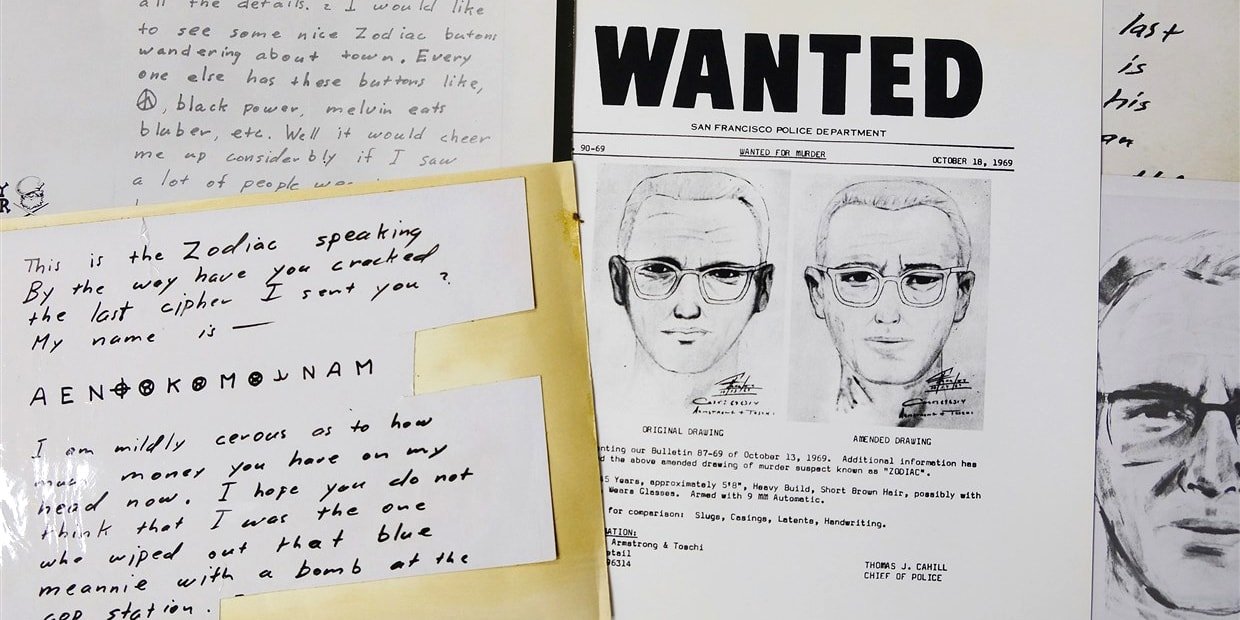 all the details. 2 I would like
to see some nice Zodiac butons
wandering about town. Every
one else has these buttons like,
, black power, melvin eats
bluber, etc. Well it would cheer
me up considerbly if I saw
a lot of people
This is the Zodiac speaking
By the way have you cracked
the last cipher I sent you ?
My name is —
A E N K M N A M
I am mildly cerous as to how
much money you have on my
head now. I hope you do not
think that I was the one
who wiped out that blue
meannie with a bomb at the
cop station.
WANTED
SAN FRANCISCO POLICE DEPARTMENT
90-69 WANTED FOR MURDER OCTOBER 18, 1969
ORIGINAL DRAWING AMENDED DRAWING
nting our Bulletin 87-69 of October 13, 1969. Additional information has
d the above amended drawing of murder suspect known as "ZODIAC".
5 Years, approximately 5'8", Heavy Build, Short Brown Hair, possibly with
Wears Glasses. Armed with 9 MM Automatic.
for comparison: Slugs, Casings, Latents, Handwriting.
ATION:
Armstrong & Toschi
etail
96314
THOMAS J. CAHILL
CHIEF OF POLICE
last
is
his
an